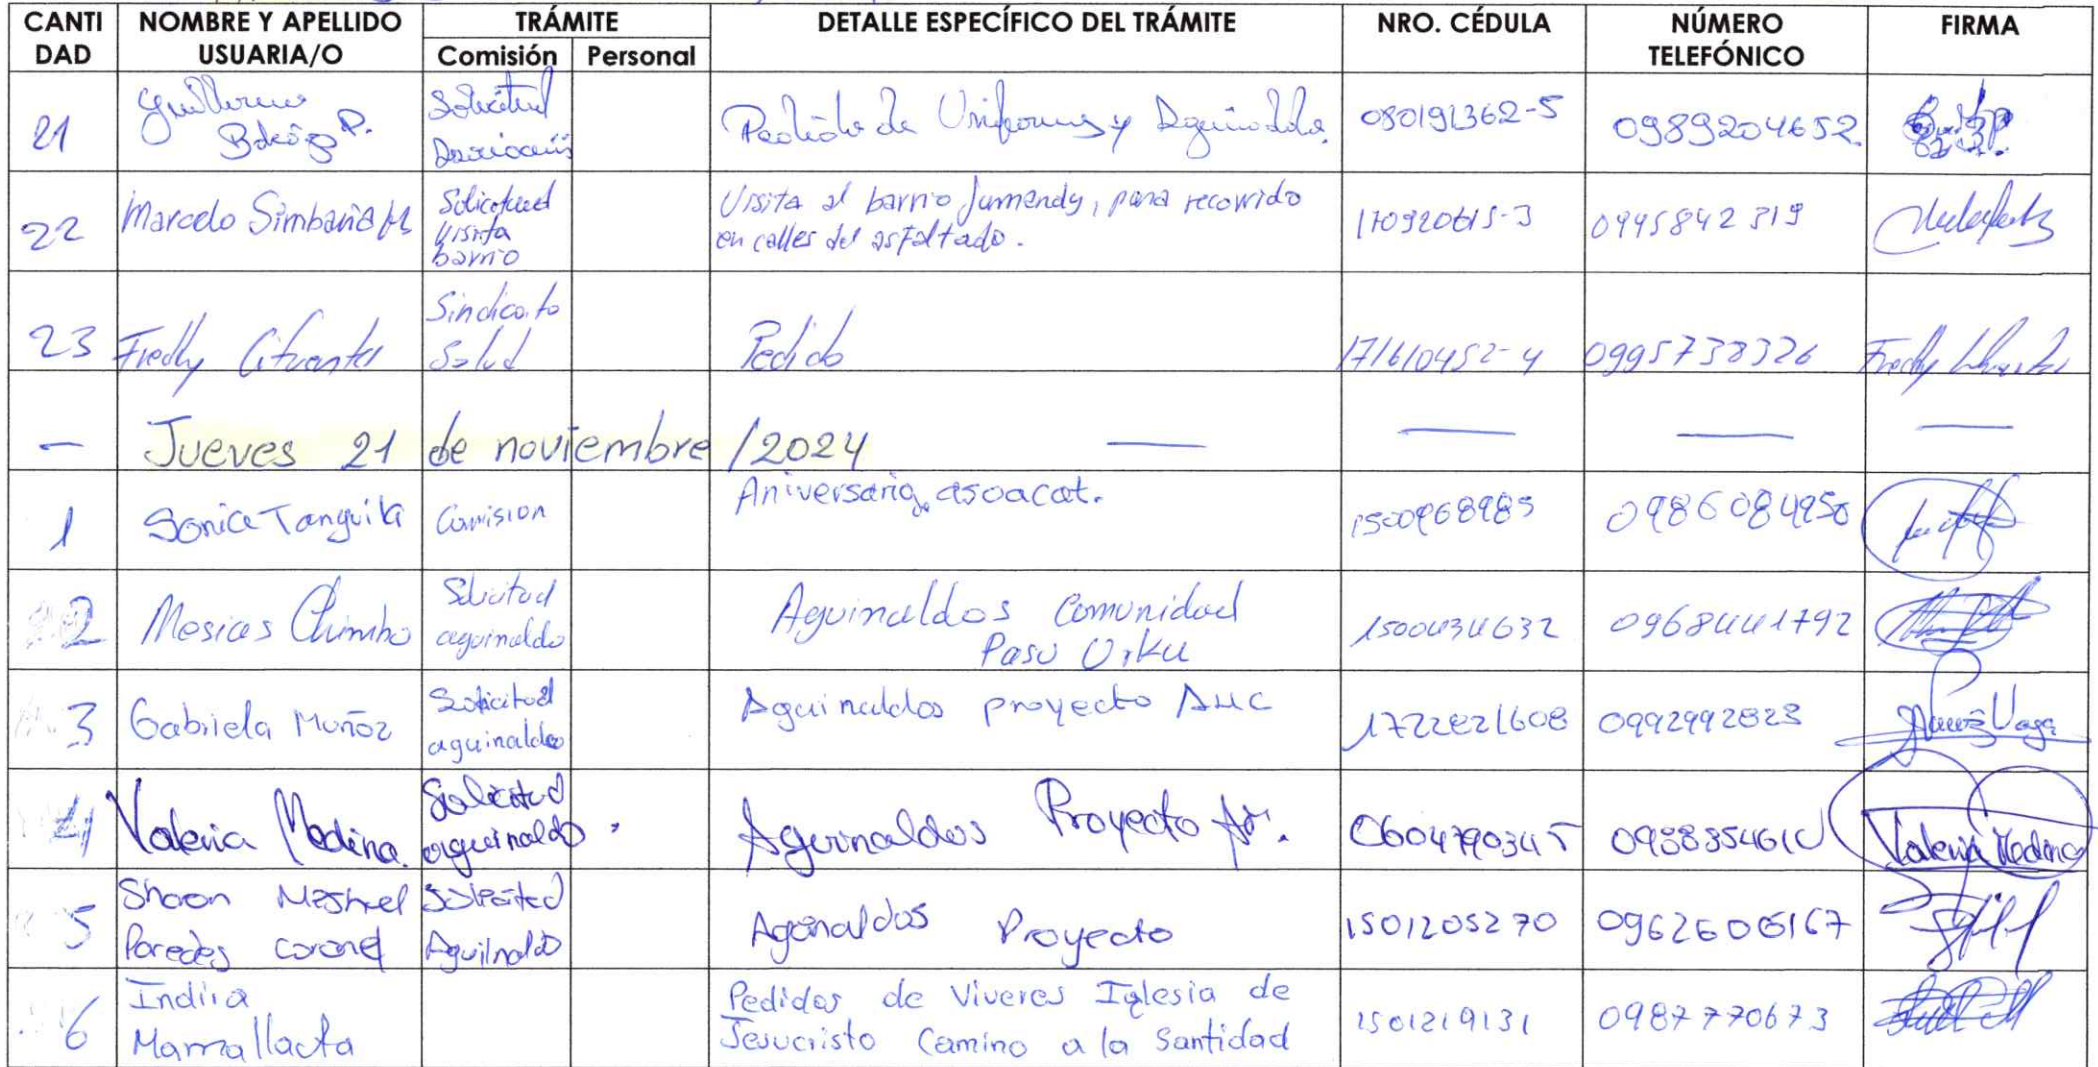 CANTIDAD NOMBRE Y APELLIDO USUARIA/O TRÁMITE Comisión Personal DETALLE ESPECÍFICO DEL TRÁMITE NRO. CÉDULA NÚMERO TELEFÓNICO FIRMA
21 Guillermo P. Solicitud Pedido de Uniformes y 080191362-5 0989204652
22 Marcelo Simbaña M Solicitud visita barrio Visita al barrio Jumandy, para recorrido
en calles del asfaltado. 170920615-3 0995842319
23 Fredy Cifuentes Sindicato Salud Pedido 171610452-4 0995738326 Fredy Cifuentes
— Jueves 21 de noviembre /2024 — — — —
1 Sonia Tanguila Comision Aniversario asoacat. 1500968985 0986084950
2 Mesias Chimbo Solicitud aguinaldo Aguinaldos Comunidad
Pasu Urku 1500434632 0968441792
3 Gabriela Muñoz Solicitud aguinaldo Aguinaldos proyecto AMC 1722821608 0992992823
4 Valeria Medina. Solicitud aguinaldo Aguinaldos Proyecto 0604790345 Valeria Medina
5 Shaon Paredes Coronel Solicitud Aguilnaldo Aganaldos Proyecto 1501205270 0962606167
6 Indira Mamallacta Pedidos de Viveres Iglesia de
Jesucristo Camino a la Santidad 1501219131 0987770673